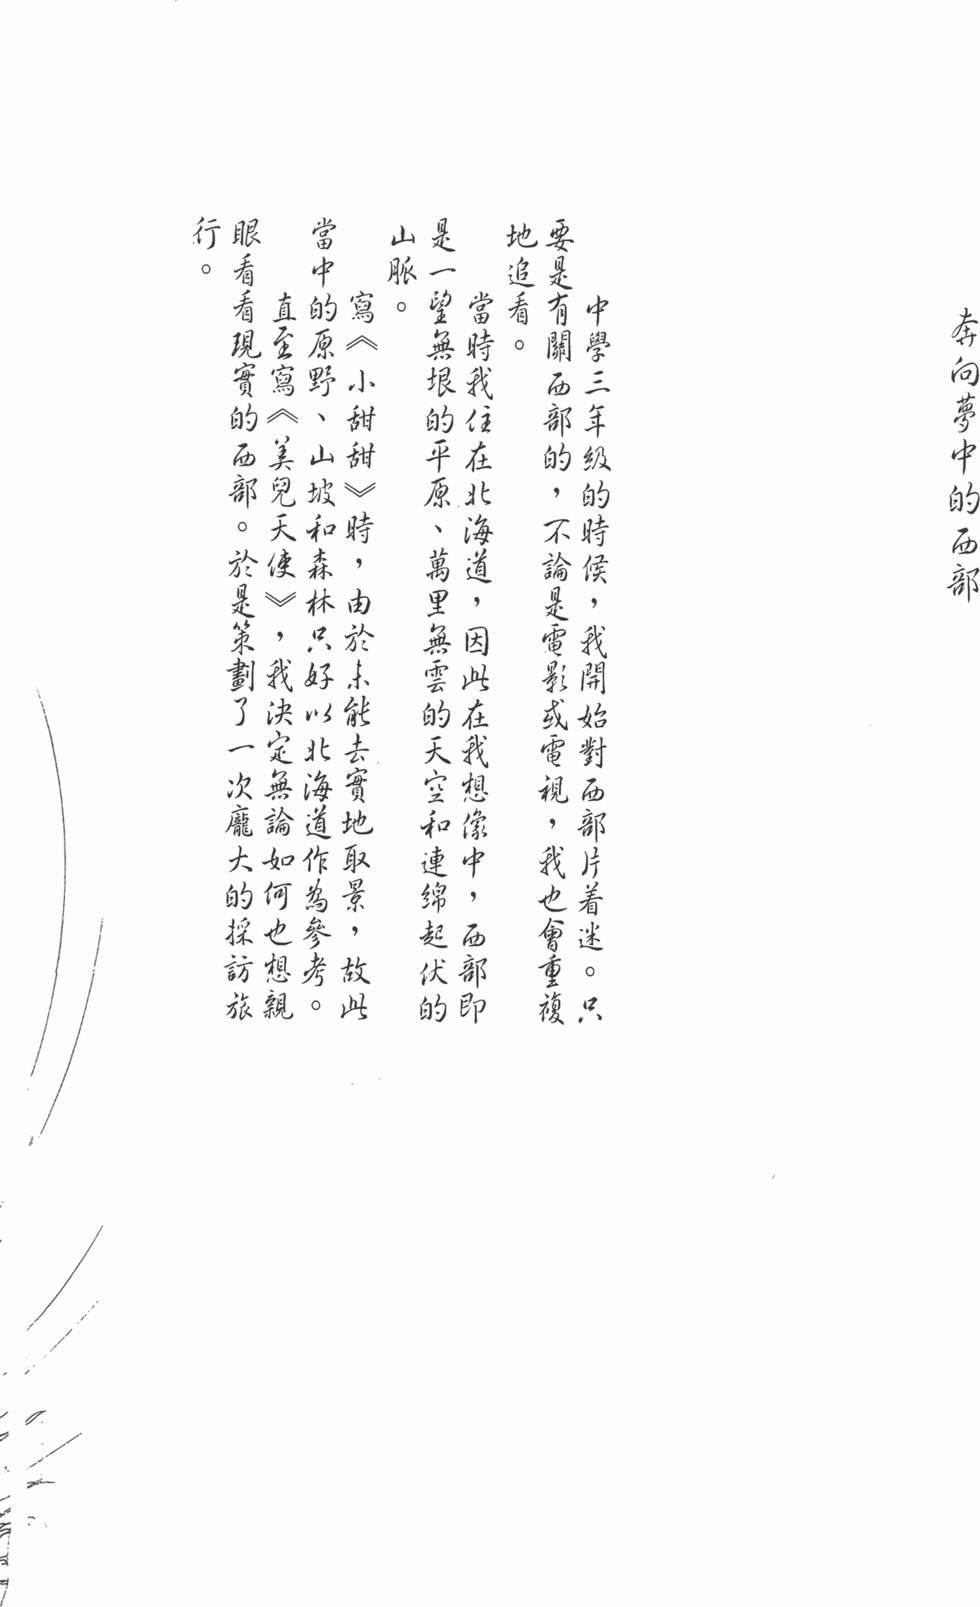 奔向夢中的西部
中學三年級的時候，我開始對西部片着迷。只
要是有關西部的，不論是電影或電視，我也會重複
地追看。
當時我住在北海道，因此在我想像中，西部即
是一望無垠的平原、萬里無雲的天空和連綿起伏的
山脈。
寫《小甜甜》時，由於未能去實地取景，故此
當中的原野、山坡和森林只好以北海道作為參考。
直至寫《美兒天使》，我決定無論如何也想親
眼看看現實的西部。於是策劃了一次龐大的採訪旅
行。